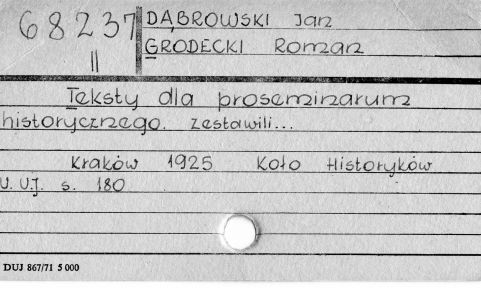 68237 DĄBROWSKI Jan
II GRODECKI Roman
Teksty dla proseminarum
historycznego. zestawili...
Kraków 1925 Koło Historyków
U. UJ. s. 180
DUJ 867/71 5 000